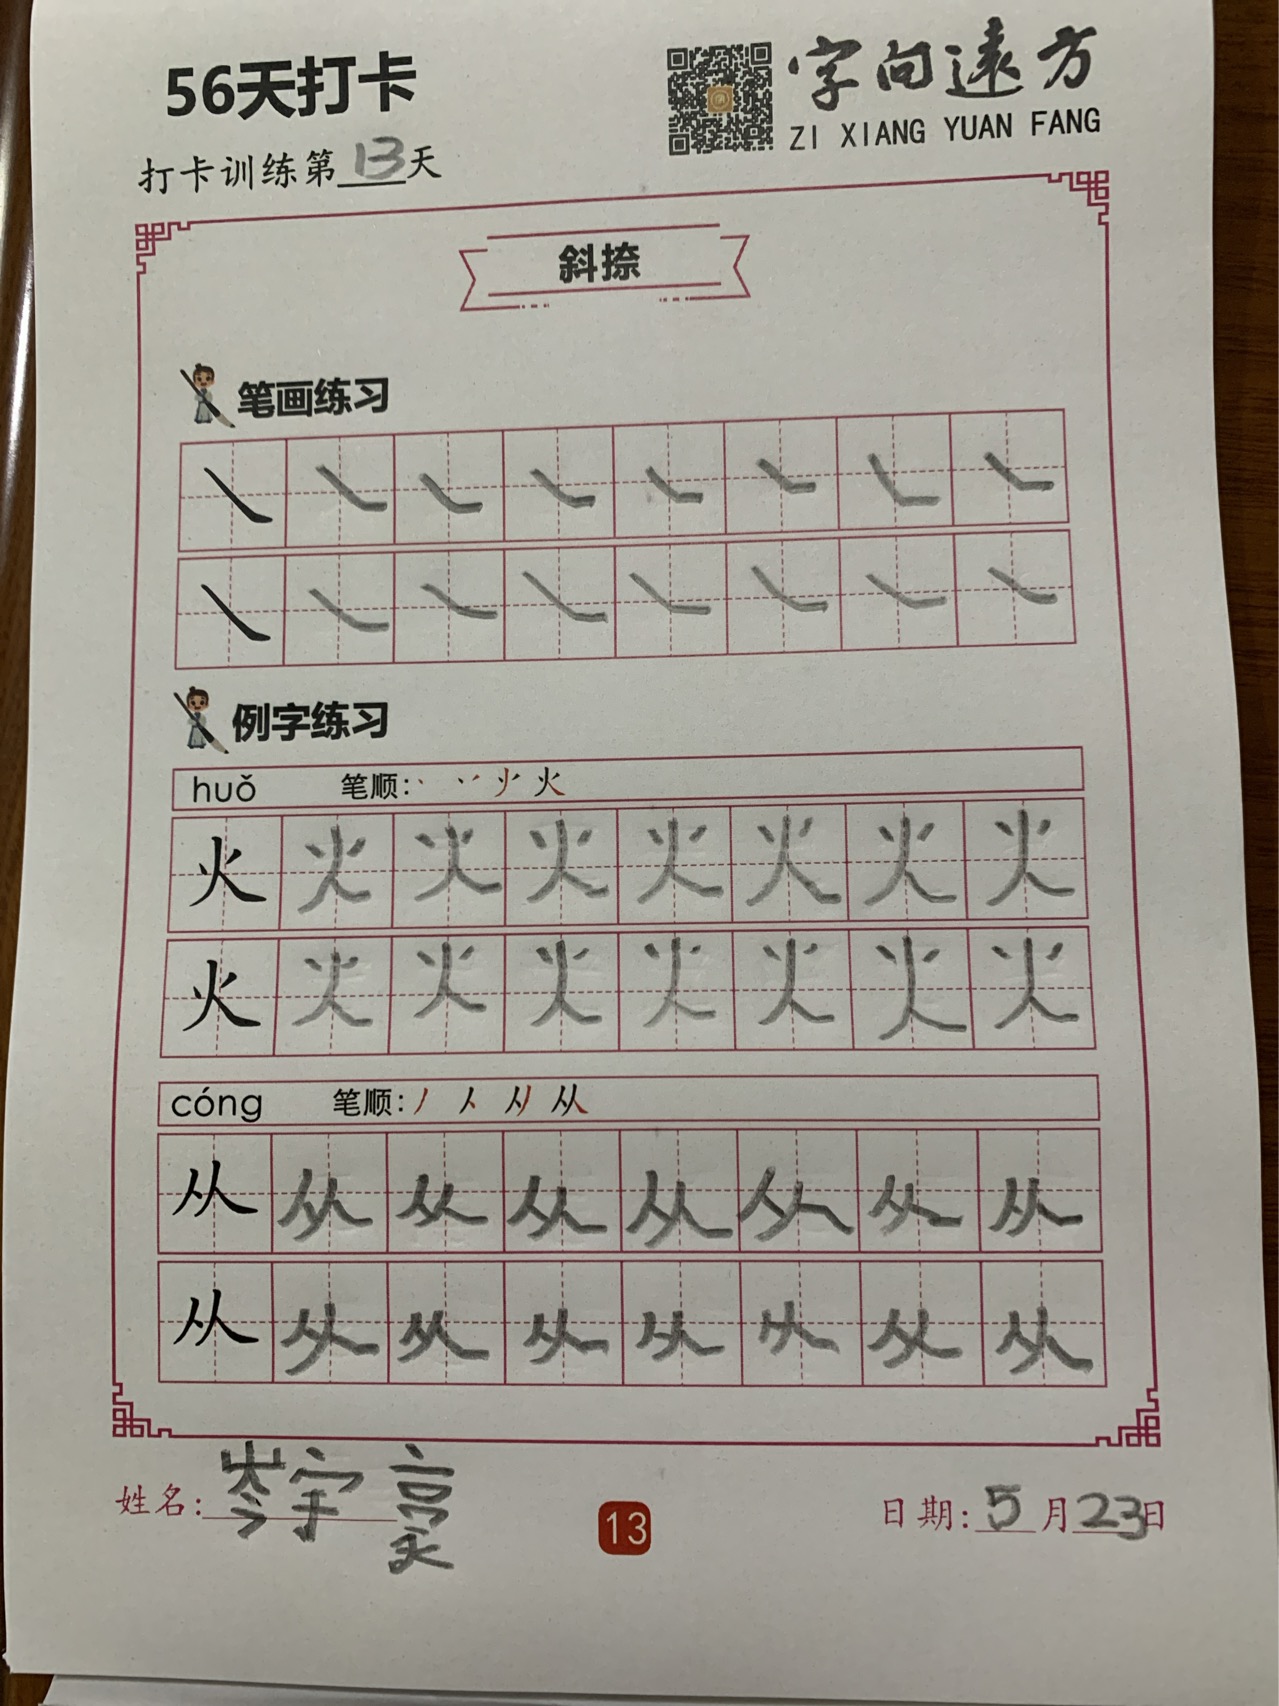 56天打卡
字向远方
ZI XIANG YUAN FANG
打卡训练第13天
斜捺
笔画练习
例字练习
huǒ 笔顺:
火
火 火 火 火 火 火 火 火
火 火 火 火 火 火 火 火
cóng 笔顺:
从
从 从 从 从 从 从 从 从
从 从 从 从 从 从 从 从
姓名:岑宇
13
日期:5月23日